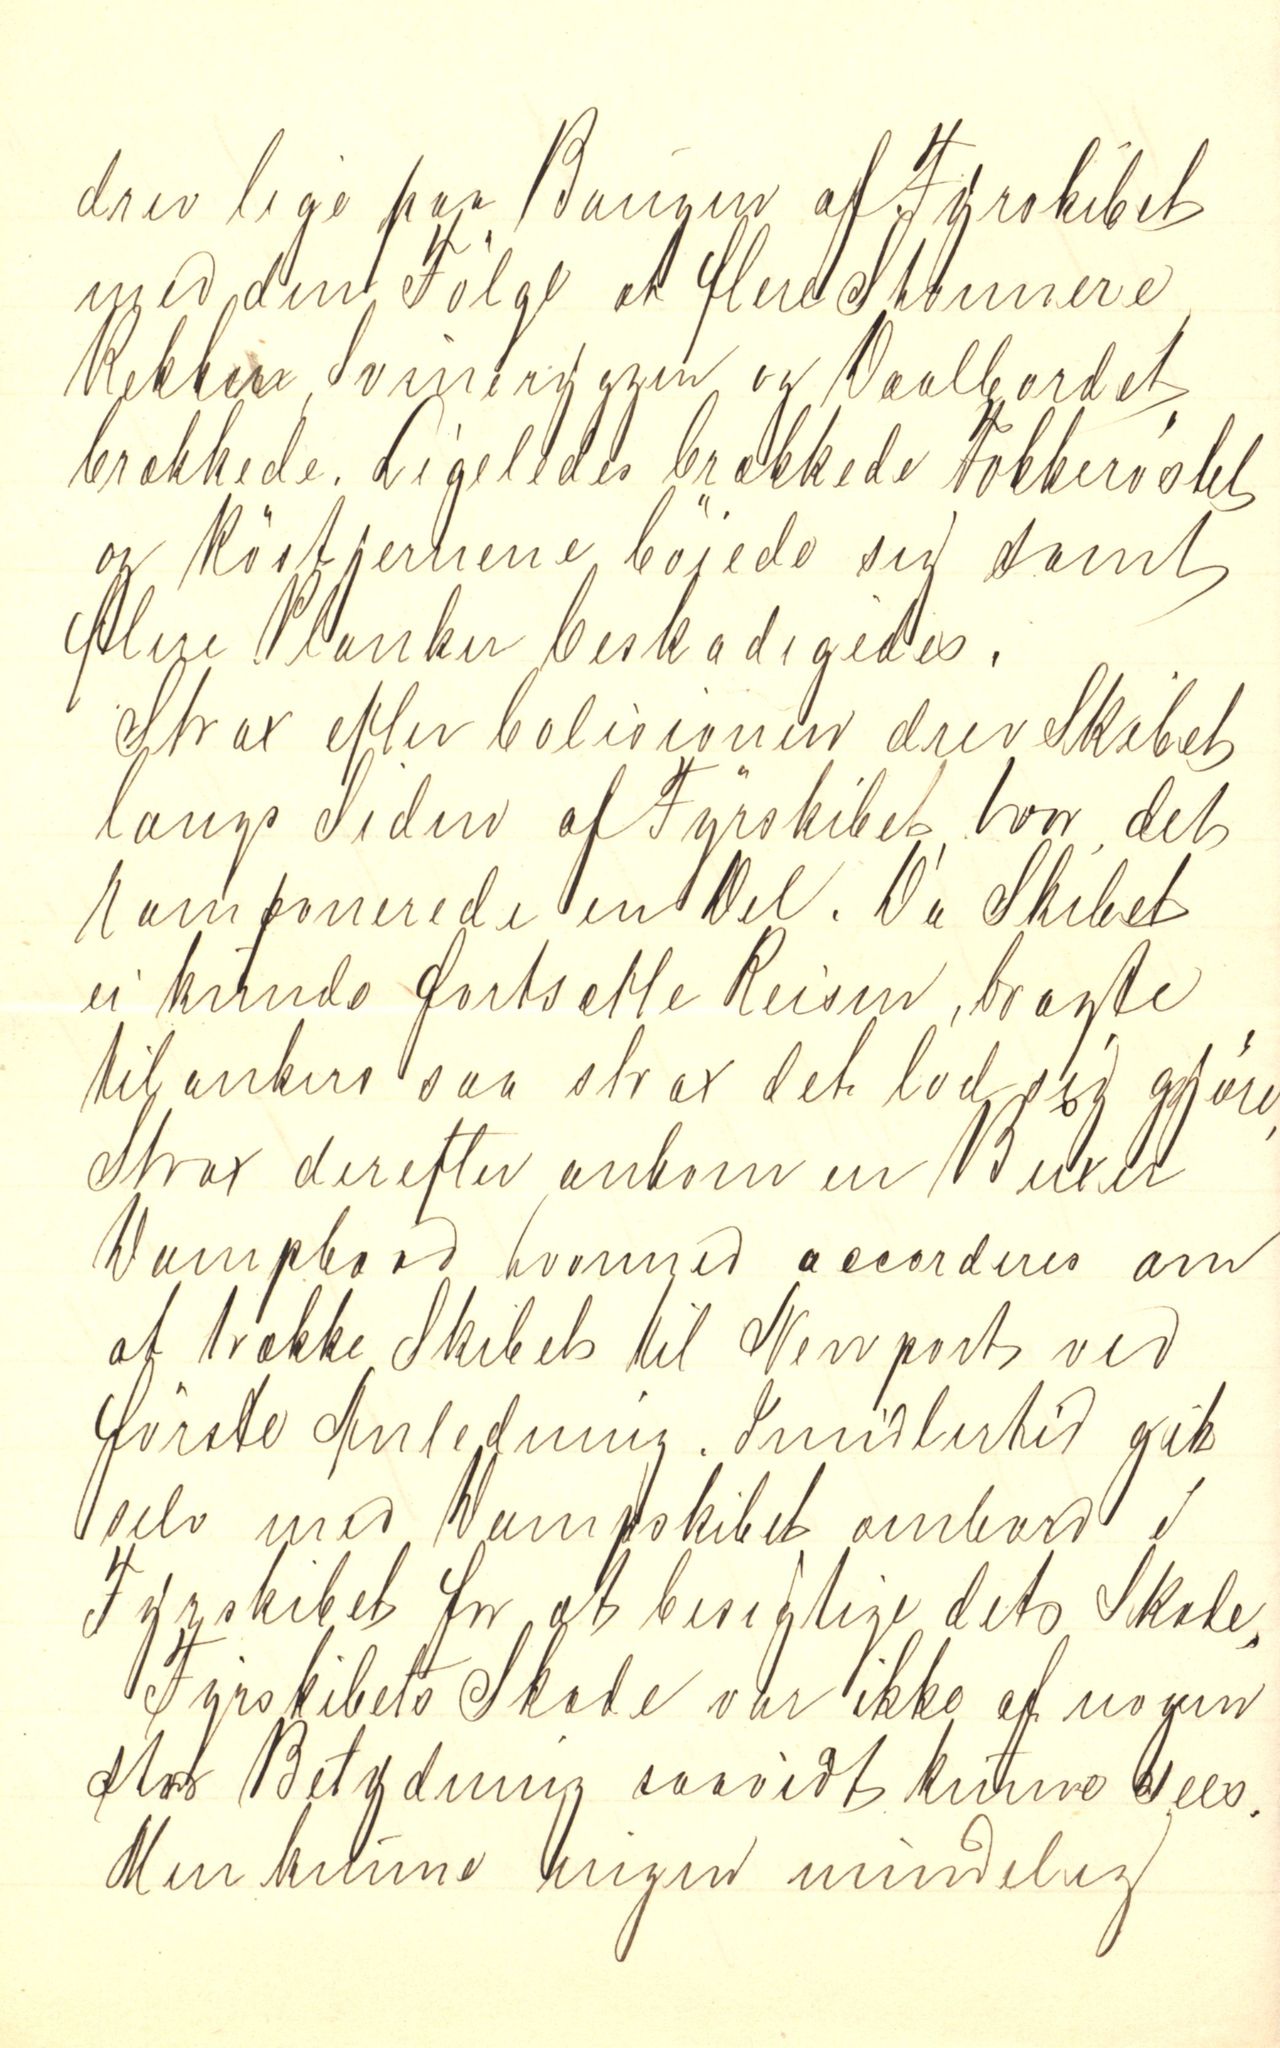 drev lige paa Bougen af Fyrskibet
med den Fölge at flere Stönnere
Rekken, Svineryggen og Vaalbordet
brækkede. Ligeledes brækkede Fokkeröstet
og Röstjernene böiede sig samt
flere Planker beskadigedes.
Strax efter Colisionen drev Skibet
langs Siden af Fyrskibet, hvor det
ramponerede en Del. Da Skibet
ei kunde fortsætte Reisen, bragte
til ankers saa strax det lod sig gjöre,
Strax derefter ankom en Buxer
Dampbaad hvormed accorderes om
at trække Skibet til Newport ved
förste Anledning. Imidlertid gik
selv med Dampskibet ombord i
Fyrskibet for at besigtige dets Skade,
Fyrskibets Skade var ikke af nogen
stor Betydning saavidt kunne sees.
Men kunne ingen mindelig